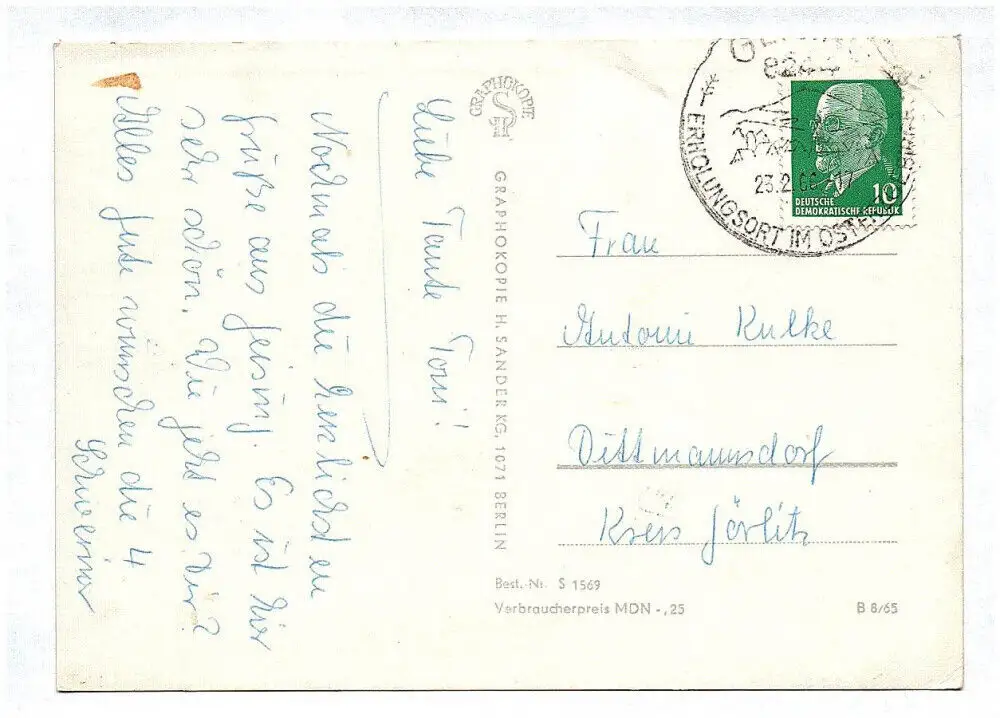 Liebe Tante Toni!
Nochmals die herzlichsten
Grüße aus Geising. Es ist hier
sehr schön. Wie geht es Dir?
Alles Gute wünschen die 4
GRAPHOKOPIE
GRAPHOKOPIE H. SANDER KG, 1071 BERLIN
8244
23.2.66 17
ERHOLUNGSORT IM
10
DEUTSCHE
DEMOKRATISCHE REPUBLIK
Frau
Antonie Kulke
Dittmannsdorf
Kreis Görlitz
Best.-Nr. S 1569
Verbraucherpreis MDN -,25
B 8/65